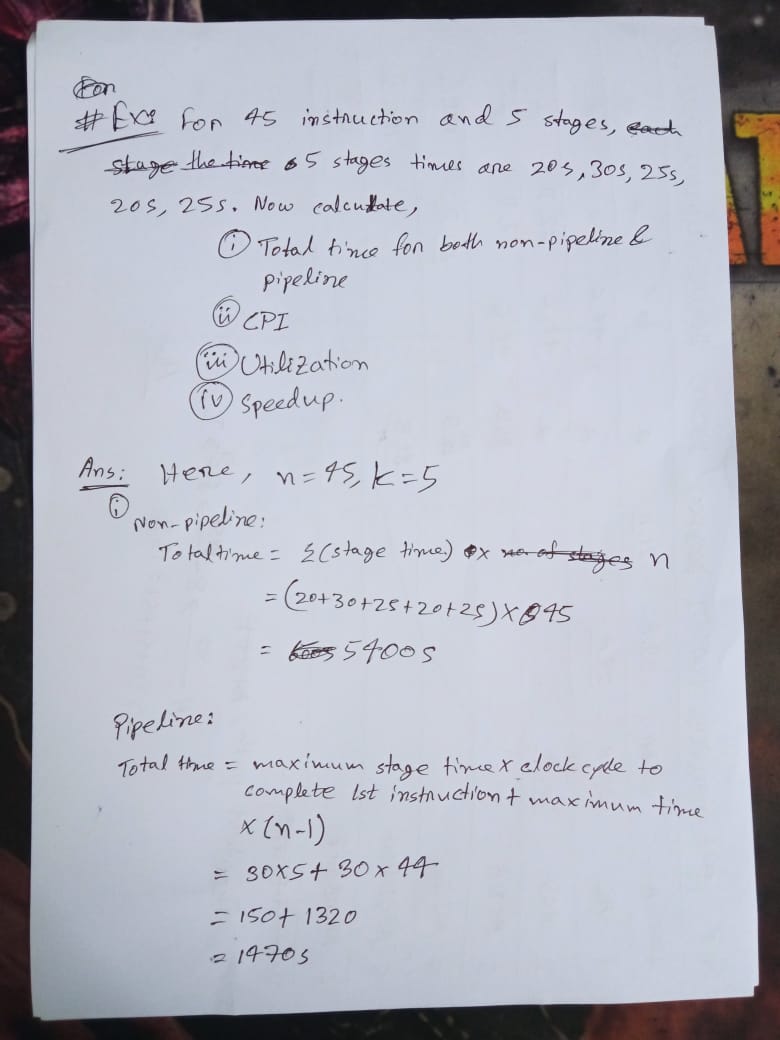 For
# Ex: For 45 instruction and 5 stages, each
stage the time 5 stages times are 20s, 30s, 25s,
20s, 25s. Now calculate,
(i) Total time for both non-pipeline &
pipeline
(ii) CPI
(iii) Utilization
(iv) speedup.
Ans: Here, n=45, k=5
(i)
Non-pipeline:
Total time = Σ(stage time) x no. of stages n
= (20+30+25+20+25)X 45
= 5400s
Pipeline:
Total time = maximum stage time x clock cycle to
complete 1st instruction + maximum time
x (n-1)
= 30x5 + 30 x 44
= 150 + 1320
= 1470s